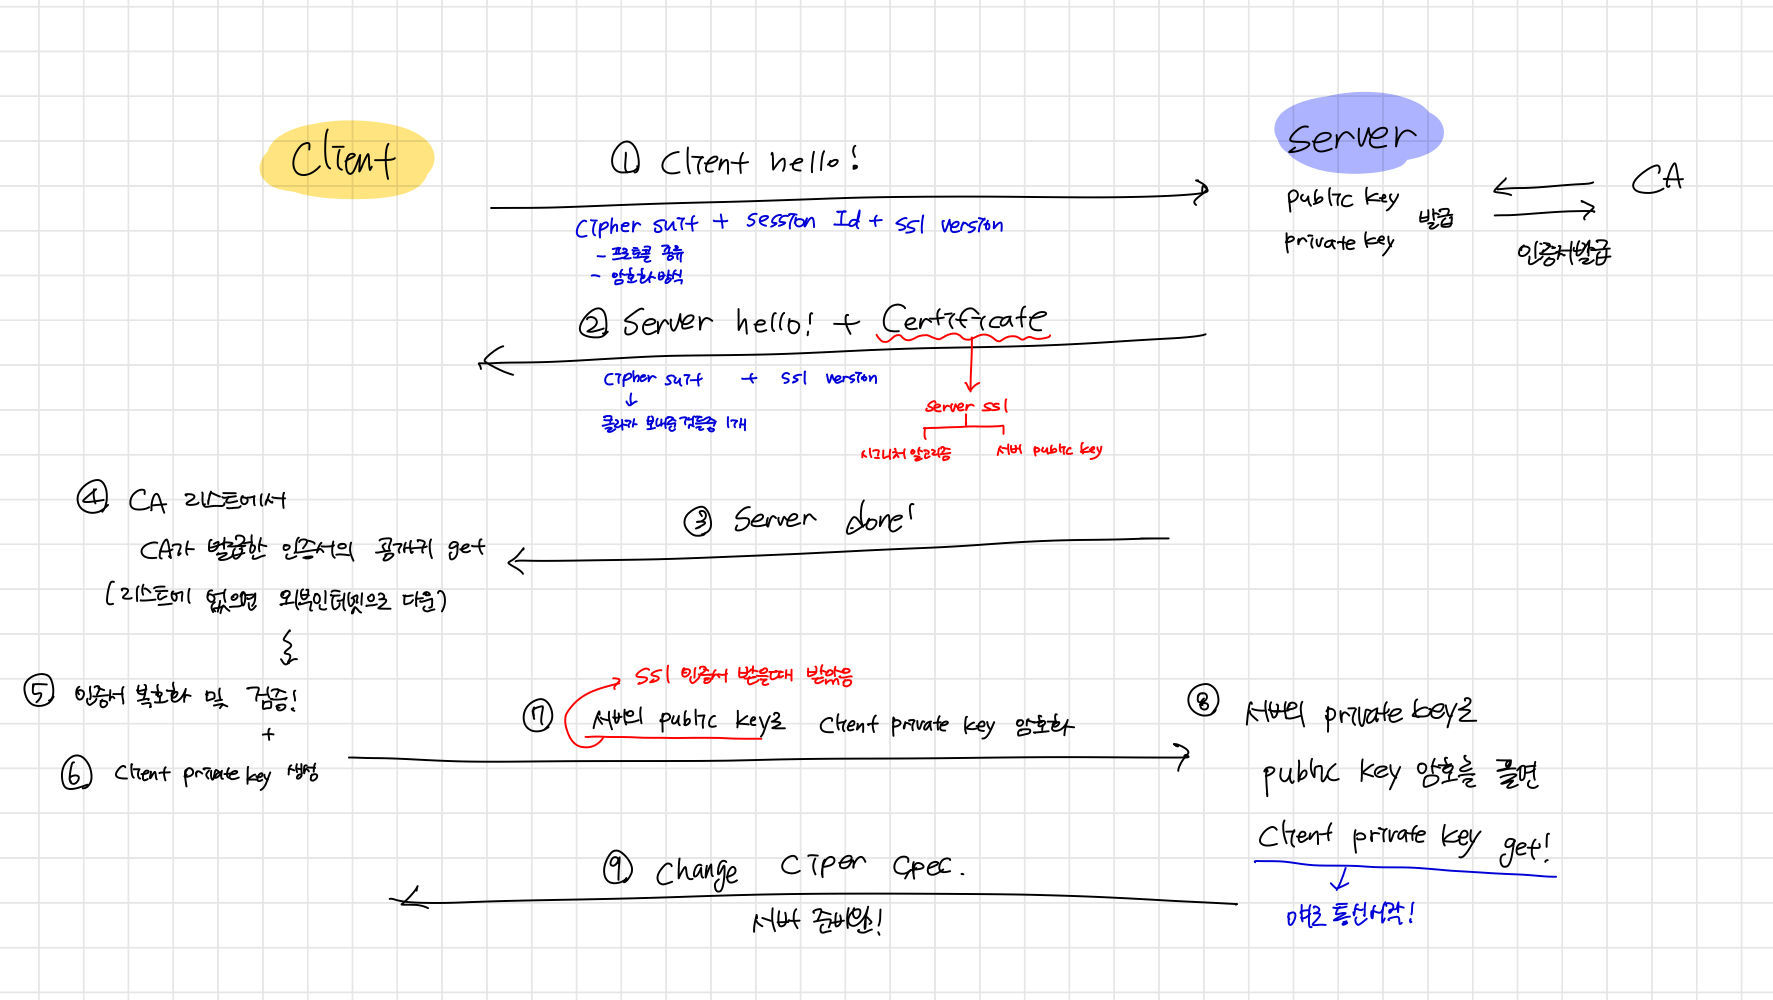 Client
Server
① Client hello!
Cipher suit + session Id + ssl version
- 프로토콜 공유
- 암호화방식
public key
private key
발급
CA
인증서발급
② Server hello! + Certificate
Cipher suit + ssl version
클라가 보내준것들중 1개
Server ssl
시그니처 알고리즘
서버 public key
③ Server done!
④ CA 리스트에서
CA가 발급한 인증서의 공개키 get
(리스트에 없으면 외부인터넷으로 다운)
⑤ 인증서 복호화 및 검증!
+
⑥ Client private key 생성
SSl 인증서 받을때 받았음
⑦ 서버의 public key로 Client private key 암호화
⑧ 서버의 private key로
public key 암호를 풀면
Client private key get!
얘로 통신시작!
⑨ Change Ciper Spec.
서버 준비완!